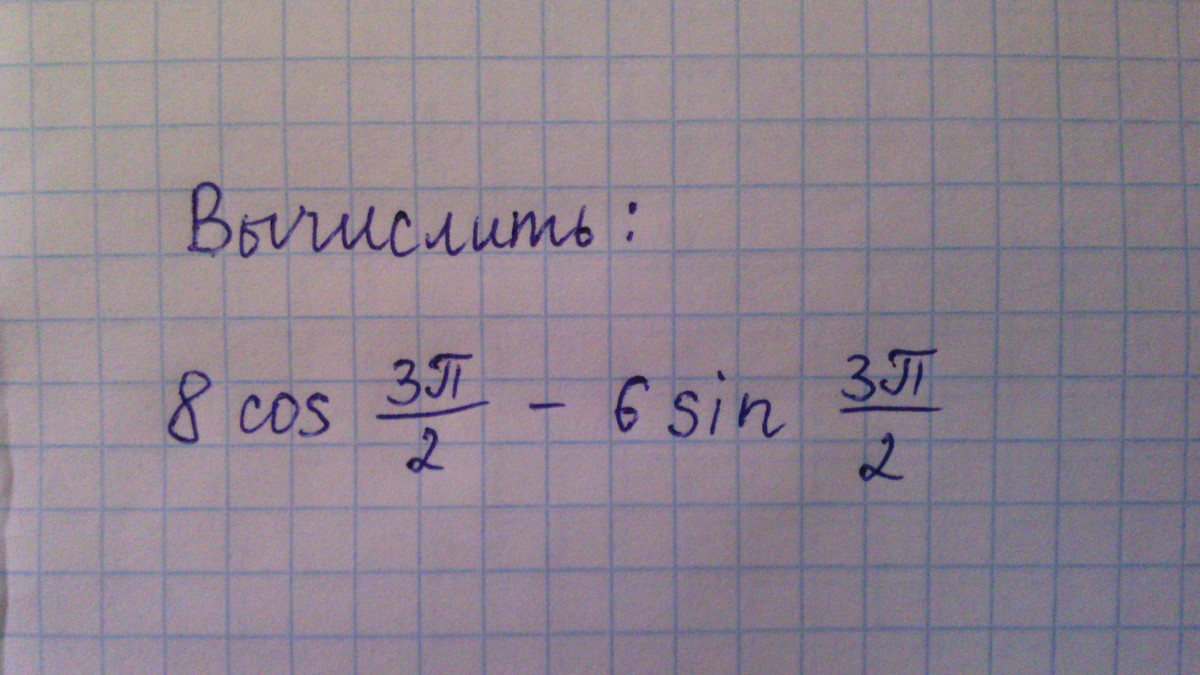 Вычислить:
8 cos 3π/2 - 6 sin 3π/2